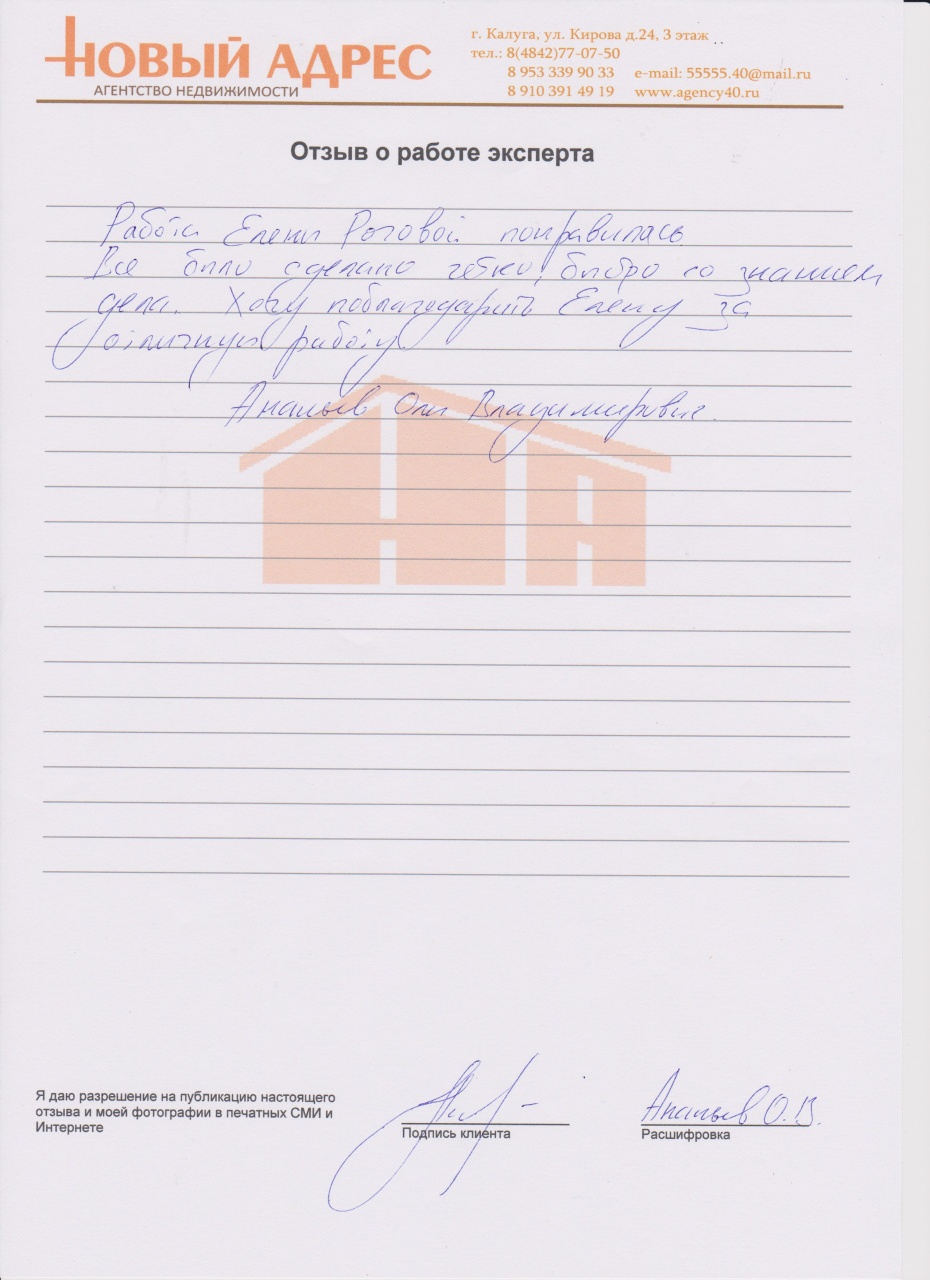 НОВЫЙ АДРЕС
АГЕНТСТВО НЕДВИЖИМОСТИ
г. Калуга, ул. Кирова д.24, 3 этаж
тел.: 8(4842)77-07-50
8 953 339 90 33 e-mail: 55555.40@mail.ru
8 910 391 49 19 www.agency40.ru
Отзыв о работе эксперта
Работа Елены Роговой понравилась.
Все было сделано четко, быстро со знанием
дела. Хочу поблагодарить Елену за
отличную работу.
Ананьев Олег Владимирович.
НА
Я даю разрешение на публикацию настоящего
отзыва и моей фотографии в печатных СМИ и
Интернете
Подпись клиента
Ананьев О.В.
Расшифровка